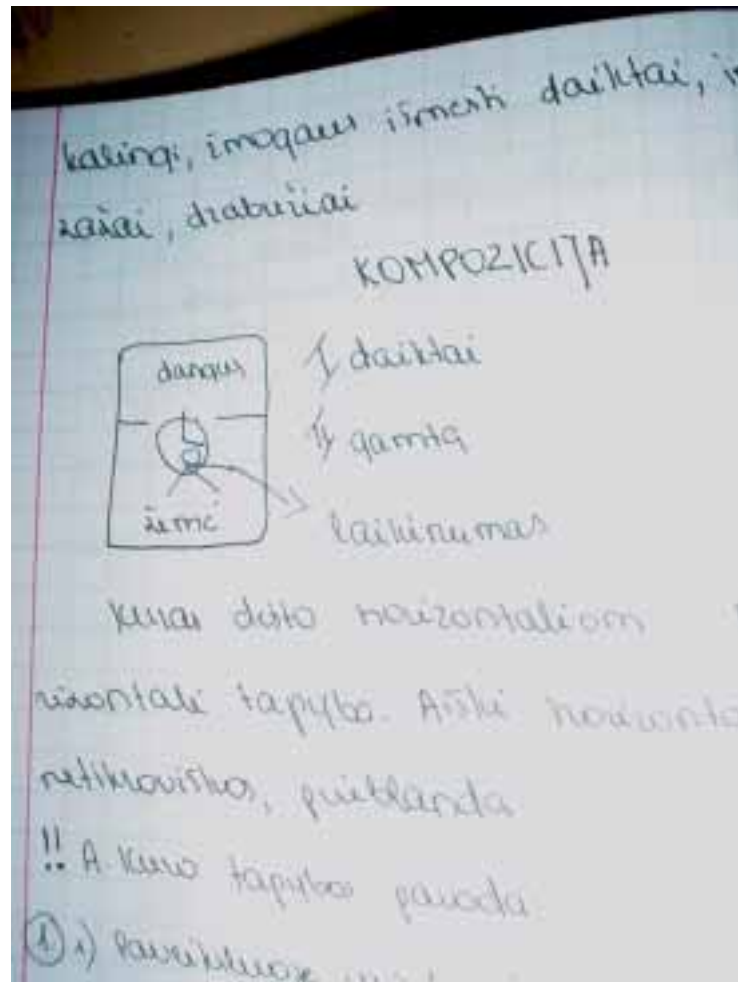 kalingi, žmogaus išmesti daiktai, i
zašai, drabužiai
KOMPOZICIJA
dangus
I daiktai
II gamtą
žemė
laikinumas
dėsto horizontaliom
tapyba. Aiški horizonto
netikroviškos, prieblanda
!! A. Kuro tapybos paroda
① 1) Paveiksluose